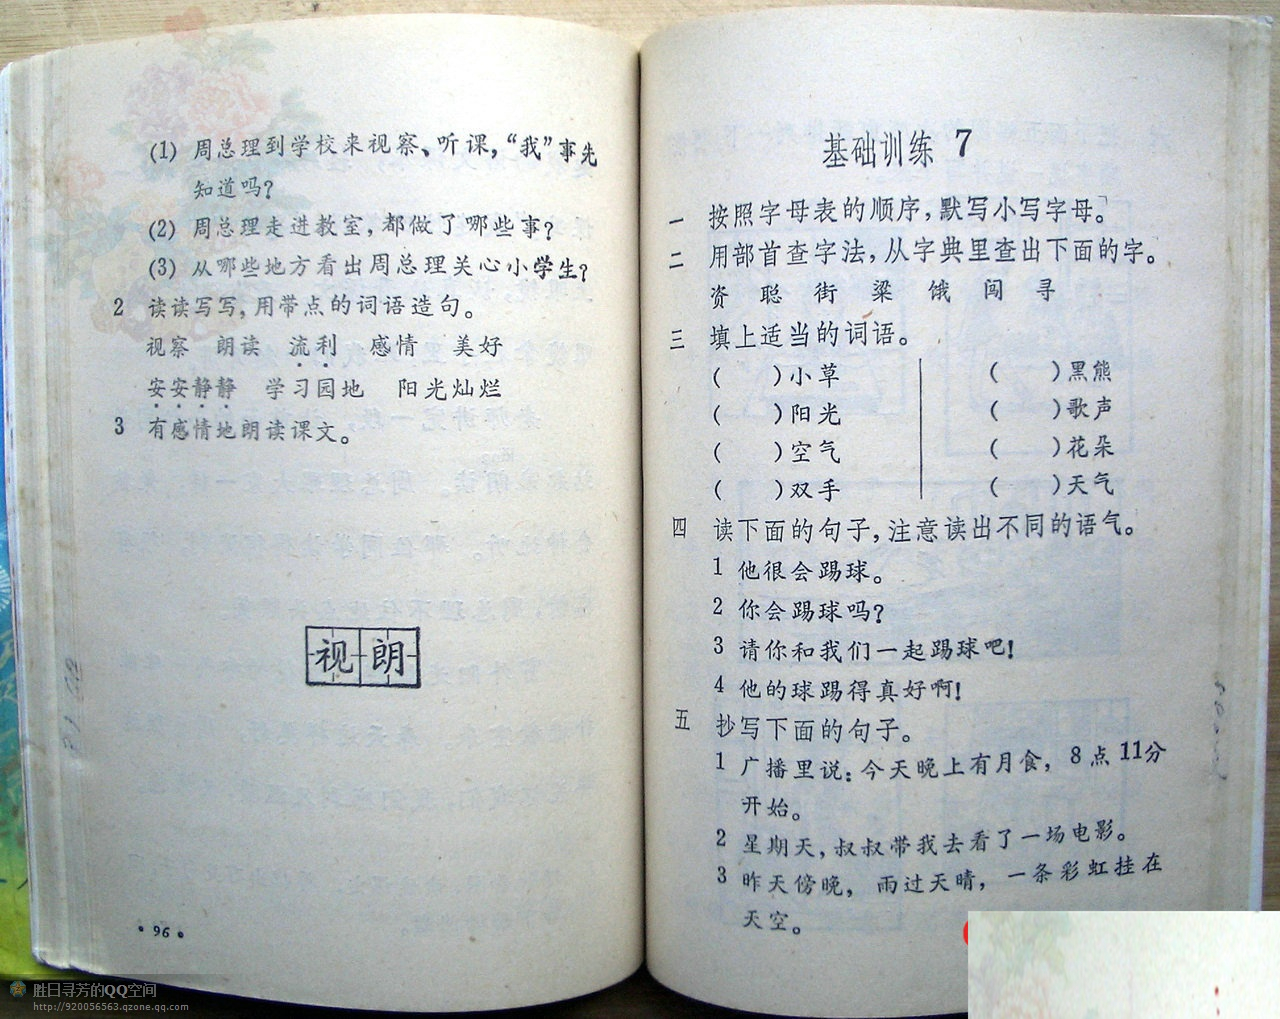 (1) 周总理到学校来视察、听课，“我”事先
知道吗？
(2) 周总理走进教室，都做了哪些事？
(3) 从哪些地方看出周总理关心小学生？
2 读读写写，用带点的词语造句。
视察 朗读 流利 感情 美好
安安静静 学习园地 阳光灿烂
3 有感情地朗读课文。
视朗
·96·
基础训练 7
一 按照字母表的顺序，默写小写字母。
二 用部首查字法，从字典里查出下面的字。
资 聪 街 梁 饿 闯 寻
三 填上适当的词语。
( )小草 ( )黑熊
( )阳光 ( )歌声
( )空气 ( )花朵
( )双手 ( )天气
四 读下面的句子，注意读出不同的语气。
1 他很会踢球。
2 你会踢球吗？
3 请你和我们一起踢球吧！
4 他的球踢得真好啊！
五 抄写下面的句子。
1 广播里说：今天晚上有月食，8点11分
开始。
2 星期天，叔叔带我去看了一场电影。
3 昨天傍晚，雨过天晴，一条彩虹挂在
天空。
胜日寻芳的QQ空间
http://920056563.qzone.qq.com